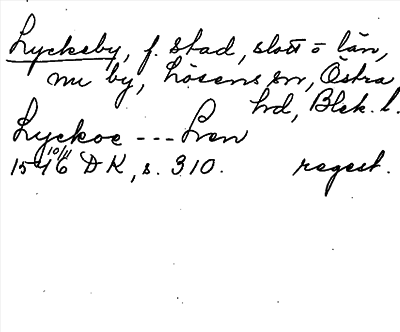 Lyckeby, f. stad, slott o län,
nu by, Lösens sn, Östra
hd, Blek. l.
Lyckoe --- Sven
1546 10/11 DK, s. 310. regest.